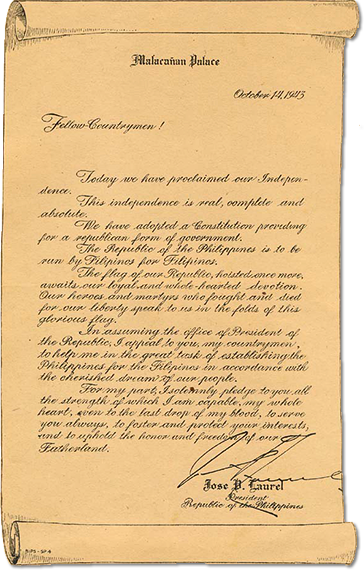 Malacañan Palace
October 14, 1943
Fellow-Countrymen!
Today we have proclaimed our Indepen-
dence.
This independence is real, complete and
absolute.
We have adopted a Constitution providing
for a republican form of government.
The Republic of the Philippines is to be
run by Filipinos for Filipinos.
The flag of our Republic, hoisted once more,
awaits our loyal and whole-hearted devotion.
Our heroes and martyrs who fought and died
for our liberty speak to us in the folds of this
glorious flag.
In assuming the office of President of
the Republic, I appeal to you, my countrymen,
to help me in the great task of establishing the
Philippines for the Filipinos in accordance with
the cherished dream of our people.
For my part, I solemnly pledge to you all
the strength of which I am capable, my whole
heart, even to the last drop of my blood, to serve
you always, to foster and protect your interests,
and to uphold the honor and freedom of our
Fatherland.
Jose P. Laurel
President
Republic of the Philippines